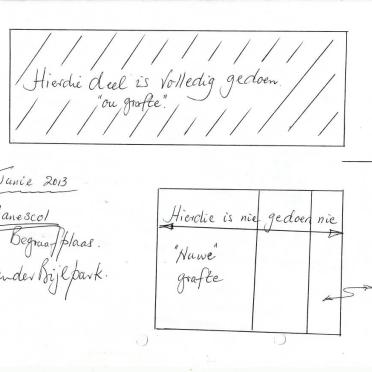 Hierdie deel is volledig gedoen.
"ou grafte".
Junie 2013
Vanescol
Begraafplaas.
anderBijlpark.
Hierdie is nie gedoen nie
"Nuwe"
grafte